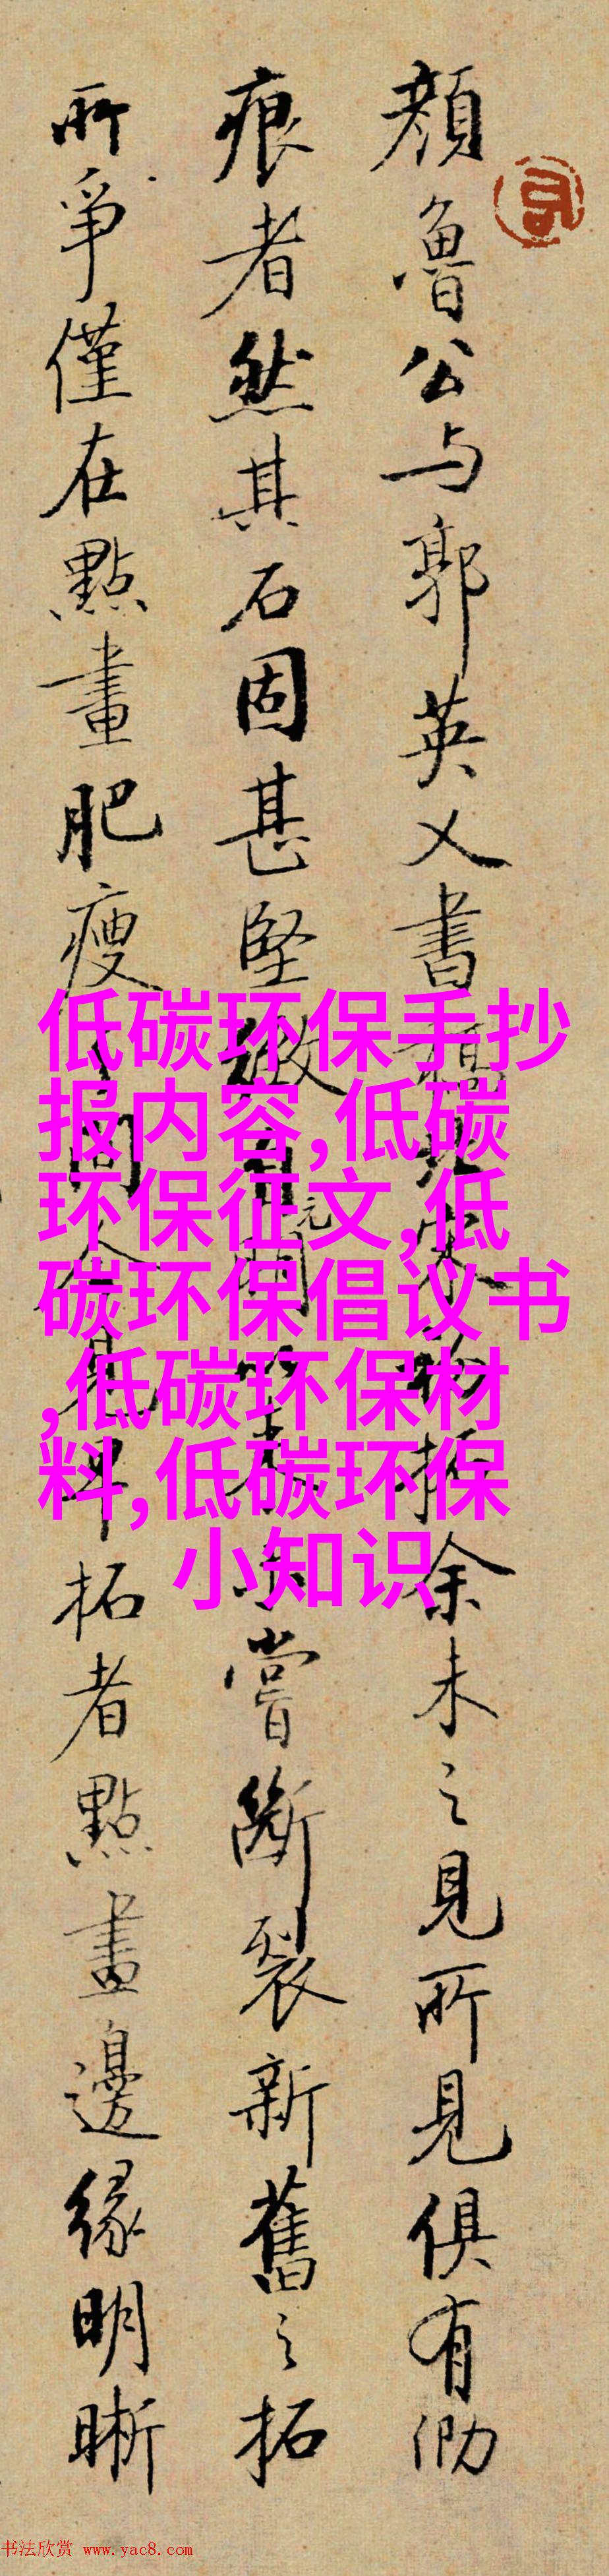 顔魯公与郭英乂書稿
余未之見所見俱有泐
痕者然其石固甚堅緻
元
嘗斷裂新舊之拓
所爭僅在點畫肥瘦
拓者點畫邊緣明晰
低碳环保手抄
报内容,低碳
环保征文,低
碳环保倡议书
,低碳环保材
料,低碳环保
小知识
书法欣赏 www.yac8.com